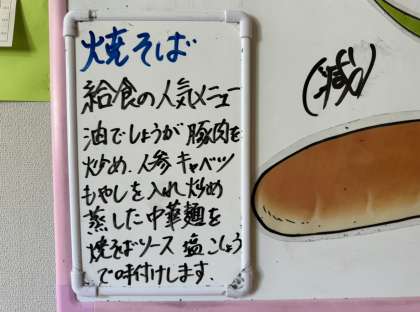 焼そば
給食の人気メニュー
油でしょうが豚肉を
炒め、人参キャベツ
もやしを入れ炒め
蒸した中華麺を
焼そばソース 塩こしょう
で味付けします。
(減)